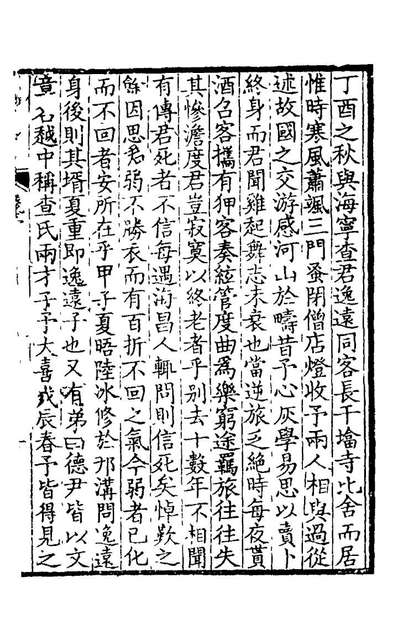 丁酉之秋與海寧查君逸遠同客長干墖寺比舍而居
惟時寒風蕭颯三門蚤閉僧店燈收予兩人相與過從
述故國之交游感河山於疇昔予心灰學易思以賣卜
終身而君聞雞起舞志未衰也當逆旅乏絕時每夜貰
酒召客攜有狎客奏絃管度曲為樂窮途羈旅往往失
其慘澹度君豈寂寞以終老者乎別去十數年不相聞
有傳君死者不信每遇海昌人輒問則信死矣悼歎之
餘因思君弱不勝衣而有百折不回之氣今弱者已化
而不回者安所在乎甲子夏晤陸冰修於邗溝問逸遠
身後則其壻夏重即逸遠子也又有弟曰德尹皆以文
章名越中稱查氏兩才子予大喜戊辰春予皆得見之